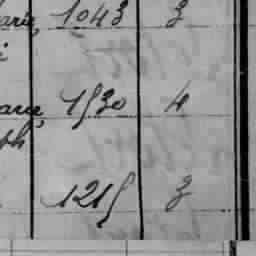 arie, 1043 3
arie, 1530 4
th
1215 3